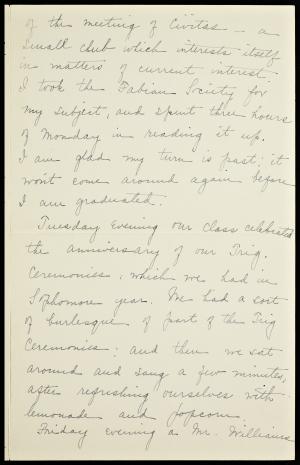 of the meeting of Civitas — a
small club which interests itself
in matters of current interest.
I took the Fabian Society for
my subject, and spent three hours
of Monday in reading it up.
I am glad my turn is past; it
won't come around again before
I am graduated.
Tuesday evening our class celebrated
the anniversary of our Trig.
Ceremonies, which we had in
Sophomore year. We had a sort
of burlesque of part of the Trig
Ceremonies; and then we sat
around and sang a few minutes,
after refreshing ourselves with
lemonade and popcorn.
Friday evening a Mr. Williams